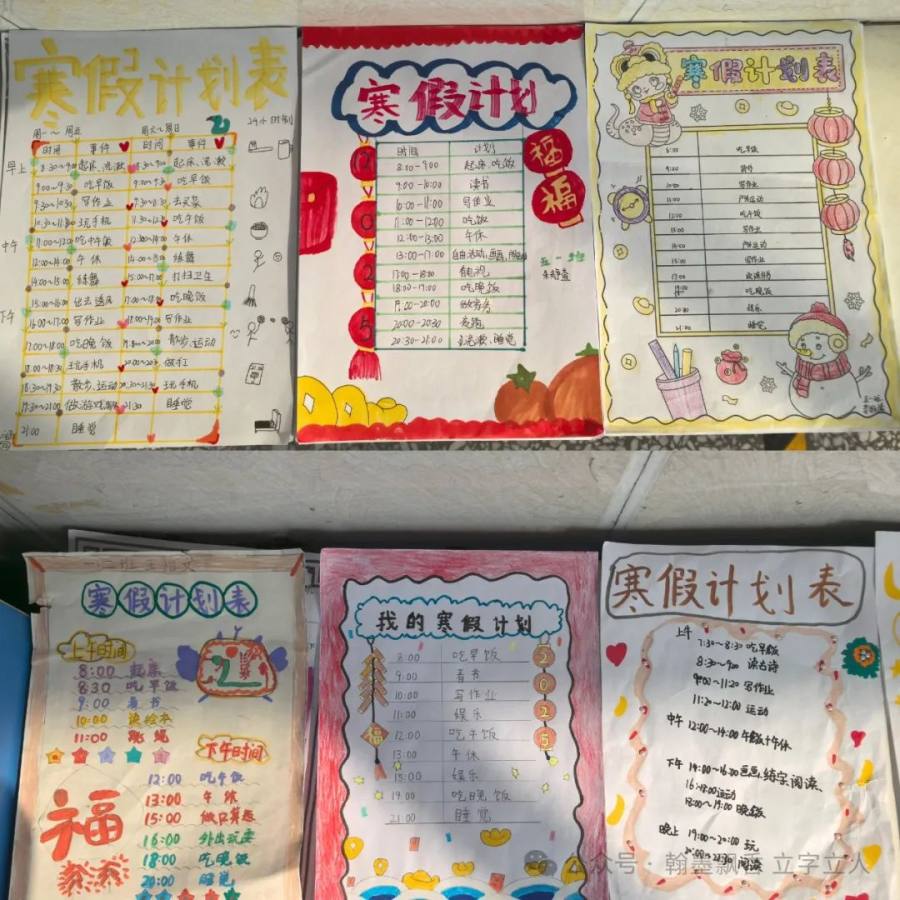 寒假计划表
周一~周五
时间 事件 时间 事件
早上
9:00~9:30 吃早饭 吃早饭
9:30~10:30 写作业 去买菜
玩手机 吃午饭
中午
11:00~12:00 吃中午饭 午休
12:00~14:00 午休 练舞
14:00~15:00 练舞 打扫卫生
吃晚饭
16:00~17:00 写作业 写作业
17:00~18:00 吃晚饭 散步,运动
玩手机
散步,运动 玩手机
睡觉
21:00 睡觉
寒假计划
2025
福
福
时间 计划
8:10-9:00 起床 吃饭
9:00-10:00 读书
10:00-11:00 写作业
11:00-12:00 吃饭
12:00-13:00 午休
13:00-17:00
17:00-18:00
18:00-19:00 吃晚饭
19:00-20:00
20:00-20:30
20:30-21:00 洗漱,睡觉
寒假计划表
吃早饭
9:00
10:00 写作业
11:00 户外运动
12:00 吃午饭
13:00 写作业
14:00 户外运动
15:00 写作业
17:00
吃晚饭
20:30 娱乐
21:00 睡觉
寒假计划表
上午时间
8:00 起床
8:30 吃早饭
9:00 看书
10:00 读绘本
11:00 跳绳
下午时间
12:00 吃午饭
13:00 午休
15:00 做口算题
16:00 外出玩耍
18:00 吃晚饭
20:00 睡觉
福
我的寒假计划
2025
福
8:00 吃早饭
9:00 看书
10:00 写作业
11:00 娱乐
12:00 吃午饭
13:00 午休
15:00 娱乐
19:00 吃晚饭
21:00 睡觉
寒假计划表
上午 7:30~8:30 吃早饭
8:30~9:00 读古诗
9:00~11:20 写作业
11:20~12:00 运动
中午 12:00~14:00 午饭+午休
下午 14:00~16:00 画画,练字,阅读
运动
18:00~19:00 晚饭
晚上 19:00~20:00 玩
阅读
公众号·翰墨飘香 立字立人